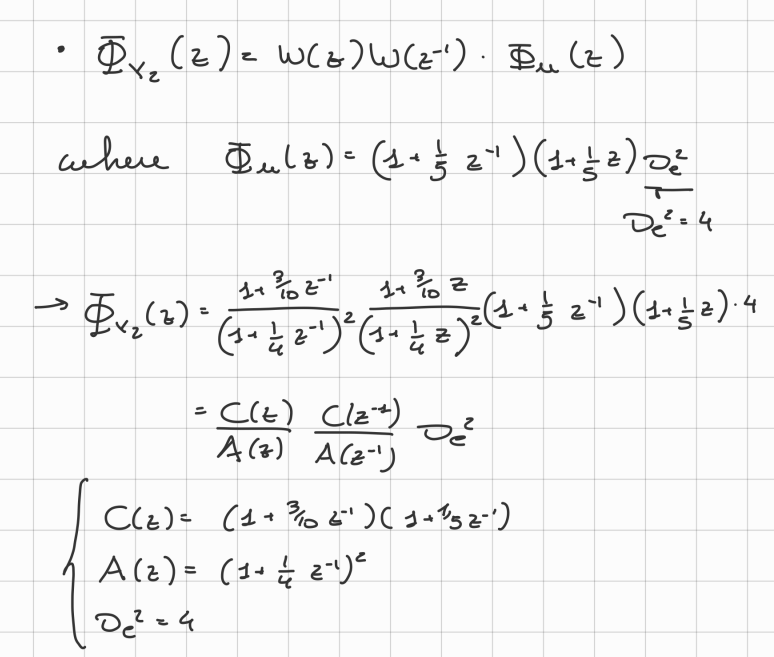 • Φ_Y₂(z) = W(z)W(z⁻¹) · Φ_u(z)
where Φ_u(z) = (1 + 1/5 z⁻¹)(1 + 1/5 z) σ_e²
σ_e² = 4
→ Φ_Y₂(z) = (1 + 3/10 z⁻¹)/(1 + 1/4 z⁻¹)² (1 + 3/10 z)/(1 + 1/4 z)² (1 + 1/5 z⁻¹)(1 + 1/5 z) · 4
= C(z)/A(z) C(z⁻¹)/A(z⁻¹) σ_e²
{ C(z) = (1 + 3/10 z⁻¹)(1 + 1/5 z⁻¹)
A(z) = (1 + 1/4 z⁻¹)²
σ_e² = 4